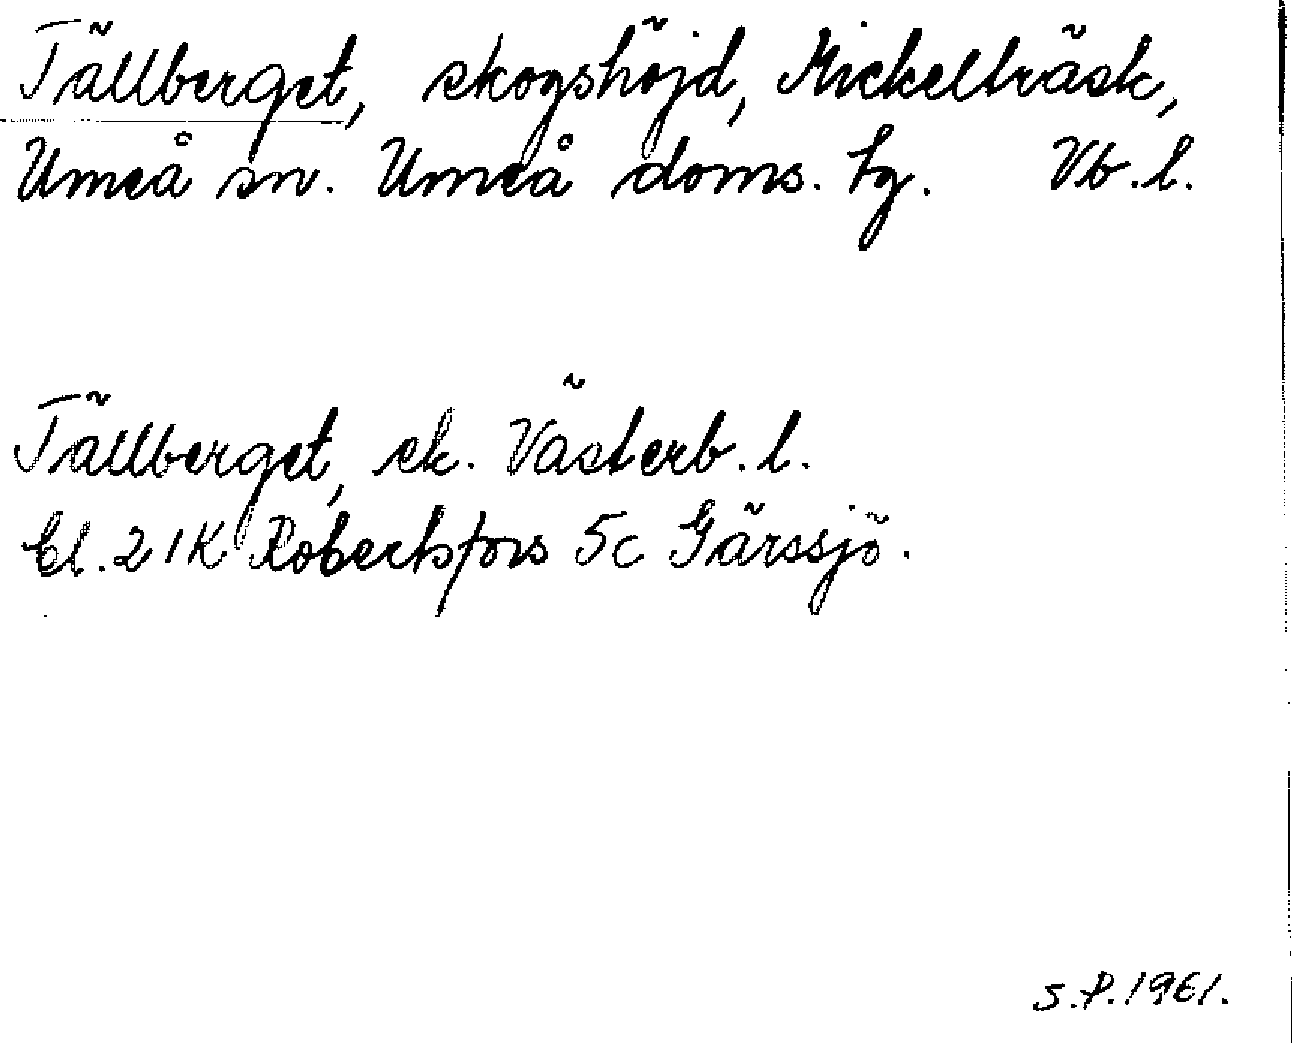 Tällberget, skogshöjd, Mickelträsk,
Umeå sn. Umeå doms. tg. Vb.l.
Tällberget, ek. Västerb.l.
bl. 21K Robertsfors 5c Gärssjö.
S.P. 1961.